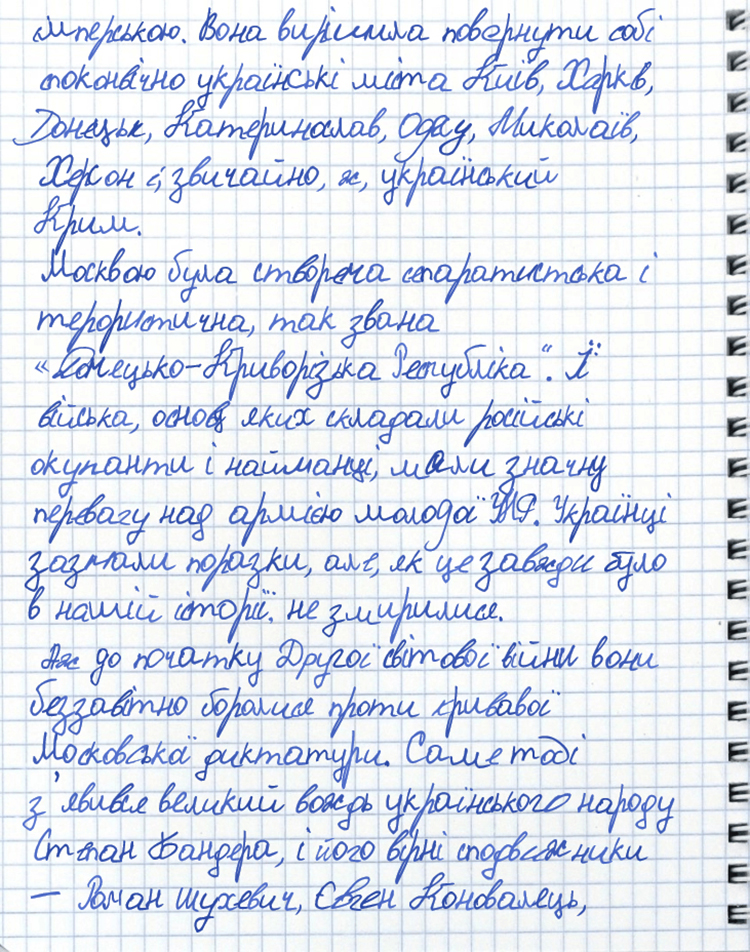 імперською. Вона вирішила повернути собі
споконвічно українські міста Київ, Харків,
Донецьк, Катеринослав, Одесу, Миколаїв,
Херсон і, звичайно, ж, український
Крим.
Москвою була створена сепаратистська і
терористична, так звана
“Донецько-Криворізька Республіка”. Її
війська, основу яких складали російські
окупанти і найманці, мали значну
перевагу над армією молодої УНР. Українці
зазнали поразки, але, як це завжди було
в нашій історії. не змирилися.
Аж до початку Другої світової війни вони
беззавітно боролися проти кривавої
Московської диктатури. Саме тоді
з’явився великий вождь українського народу
Степан Бандера, і його вірні сподвижники
— Роман Шухевич, Євген Коновалець,